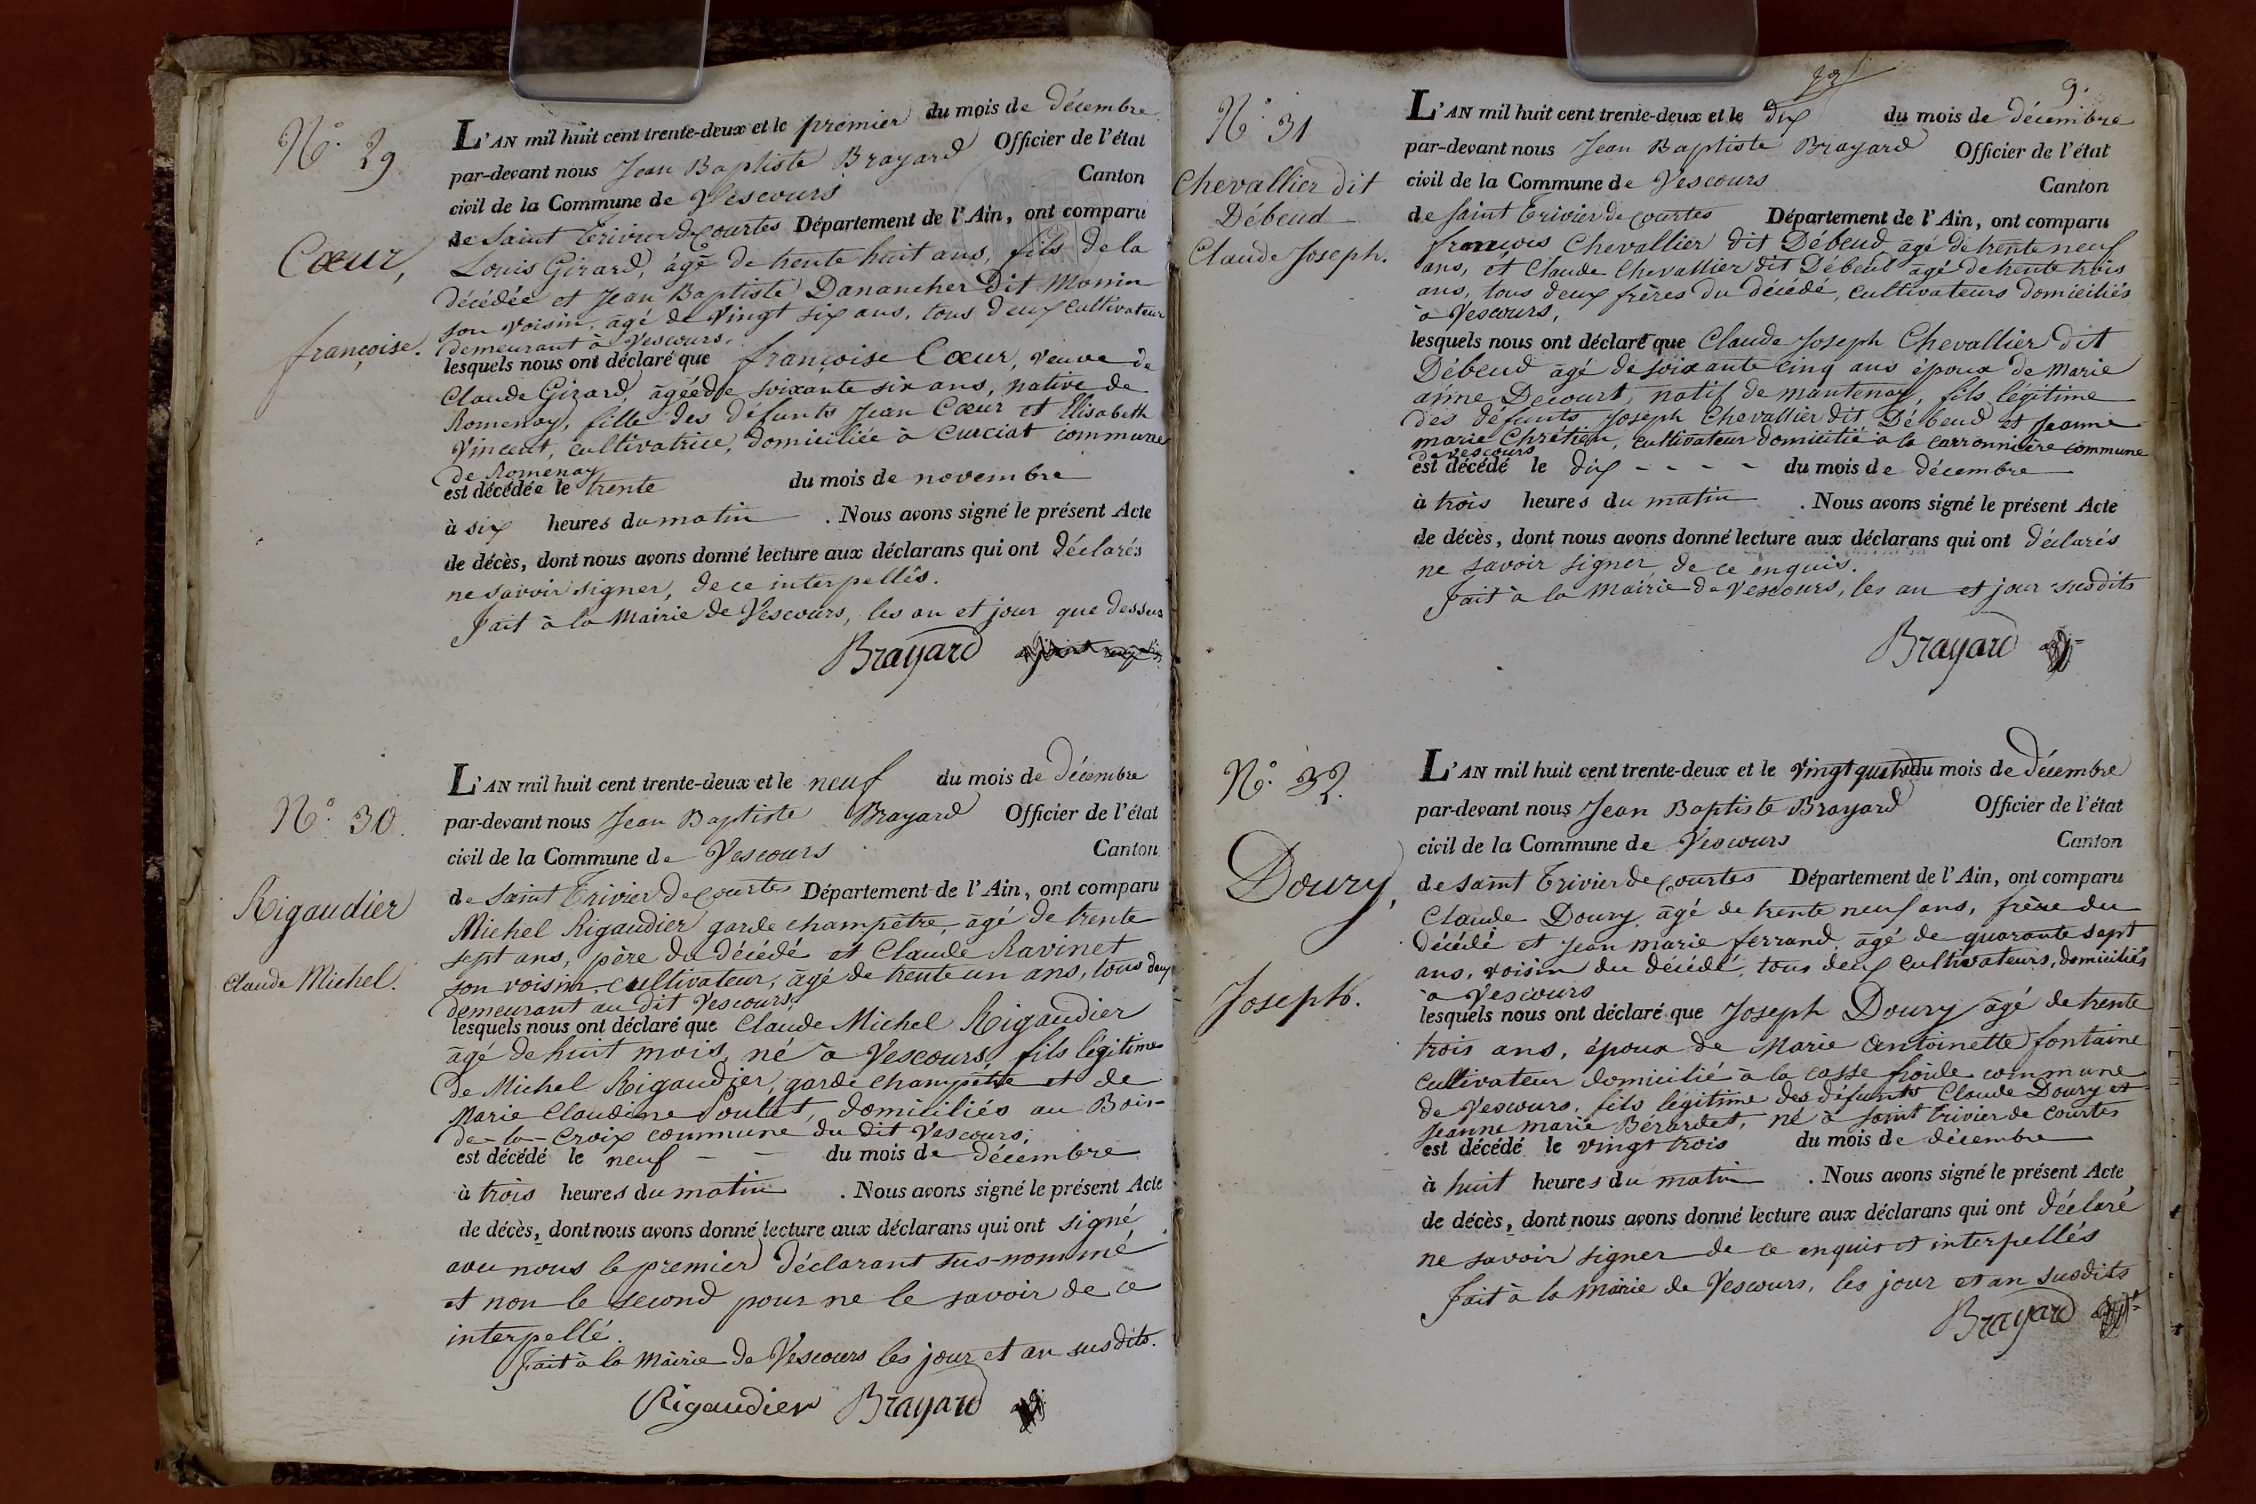 N.° 29
Cœur,
françoise.
L'AN mil huit cent trente-deux et le premier du mois de décembre
par-devant nous Jean Baptiste Brayard Officier de l'état
civil de la Commune de Vescours Canton
de Saint Trivier de Courtes Département de l'Ain, ont comparu
Louis Girard, âgé de trente huit ans, fils de la
décédée et Jean Baptiste Danancher dit Monin
son voisin, âgé de vingt six ans, tous deux cultivateurs
demeurant à Vescours,
lesquels nous ont déclaré que françoise Cœur, veuve de
Claude Girard, âgée de soixante six ans, native de
Romenay, fille des défunts Jean Cœur et Elisabeth
Vincent, cultivatrice, domiciliée à Curciat commune
de Romenay
est décédée le trente du mois de novembre
à six heures du matin . Nous avons signé le présent Acte
de décès, dont nous avons donné lecture aux déclarans qui ont déclarés
ne savoir signer, de ce interpellés.
Fait à la Mairie de Vescours, les an et jour que dessus
Brayard
N.° 30.
Rigaudier
Claude Michel.
L'AN mil huit cent trente-deux et le neuf du mois de décembre
par-devant nous Jean Baptiste Brayard Officier de l'état
civil de la Commune de Vescours Canton
de Saint Trivier de Courtes Département de l'Ain, ont comparu
Michel Rigaudier garde champêtre, âgé de trente
sept ans, père du décédé et Claude Ravinet
son voisin, cultivateur, âgé de trente un ans, tous deux
demeurant au dit Vescours,
lesquels nous ont déclaré que Claude Michel Rigaudier
âgé de huit mois, né à Vescours, fils légitime
de Michel Rigaudier, garde champêtre et de
Marie Claudine Poulet, domiciliés au Bois-
de-la-Croix commune du dit Vescours,
est décédé le neuf - - du mois de décembre
à trois heures du matin . Nous avons signé le présent Acte
de décès, dont nous avons donné lecture aux déclarans qui ont signé
avec nous le premier déclarant sus-nommé
et non le second pour ne le savoir de ce
interpellé.
Fait à la Mairie de Vescours les jour et an susdits.
Rigaudier Brayard
9.
N.° 31
Chevallier dit
Débeud
Claude Joseph.
L'AN mil huit cent trente-deux et le dix du mois de décembre
par-devant nous Jean Baptiste Brayard Officier de l'état
civil de la Commune de Vescours Canton
de Saint Trivier de Courtes Département de l'Ain, ont comparu
françois Chevallier dit Débeud âgé de trente neuf
ans, et Claude Chevallier dit Débeud âgé de trente trois
ans, tous deux frères du décédé, cultivateurs domiciliés
à Vescours,
lesquels nous ont déclaré que Claude Joseph Chevallier dit
Débeud âgé de soixante cinq ans époux de Marie
anne Decourt, natif de mantenay, fils légitime
des défunts Joseph Chevallier dit Débeud et Jeanne
marie Chrétien, cultivateur domicilié à la carronnière commune
de Vescours
est décédé le dix - - - - du mois de décembre
à trois heures du matin . Nous avons signé le présent Acte
de décès, dont nous avons donné lecture aux déclarans qui ont déclarés
ne savoir signer, de ce enquis.
Fait à la Mairie de Vescours, les an et jour susdits
Brayard
N.° 32.
Doury,
Joseph.
L'AN mil huit cent trente-deux et le vingt quatre du mois de décembre
par-devant nous Jean Baptiste Brayard Officier de l'état
civil de la Commune de Vescours Canton
de Saint Trivier de Courtes Département de l'Ain, ont comparu
Claude Doury âgé de trente neuf ans, frère du
décédé et Jean marie ferrand âgé de quarante sept
ans, voisin du décédé, tous deux cultivateurs, domiciliés
à Vescours
lesquels nous ont déclaré que Joseph Doury âgé de trente
trois ans, époux de Marie antoinette fontaine
cultivateur domicilié à la casse froide commune
de Vescours, fils légitime des défunts Claude Doury et
Jeanne marie Bérardet, né à Saint Trivier de Courtes
est décédé le vingt trois du mois de décembre
à huit heures du matin . Nous avons signé le présent Acte
de décès, dont nous avons donné lecture aux déclarans qui ont déclaré
ne savoir signer de ce enquis et interpellés
Fait à la mairie de Vescours, les jour et an susdits
Brayard